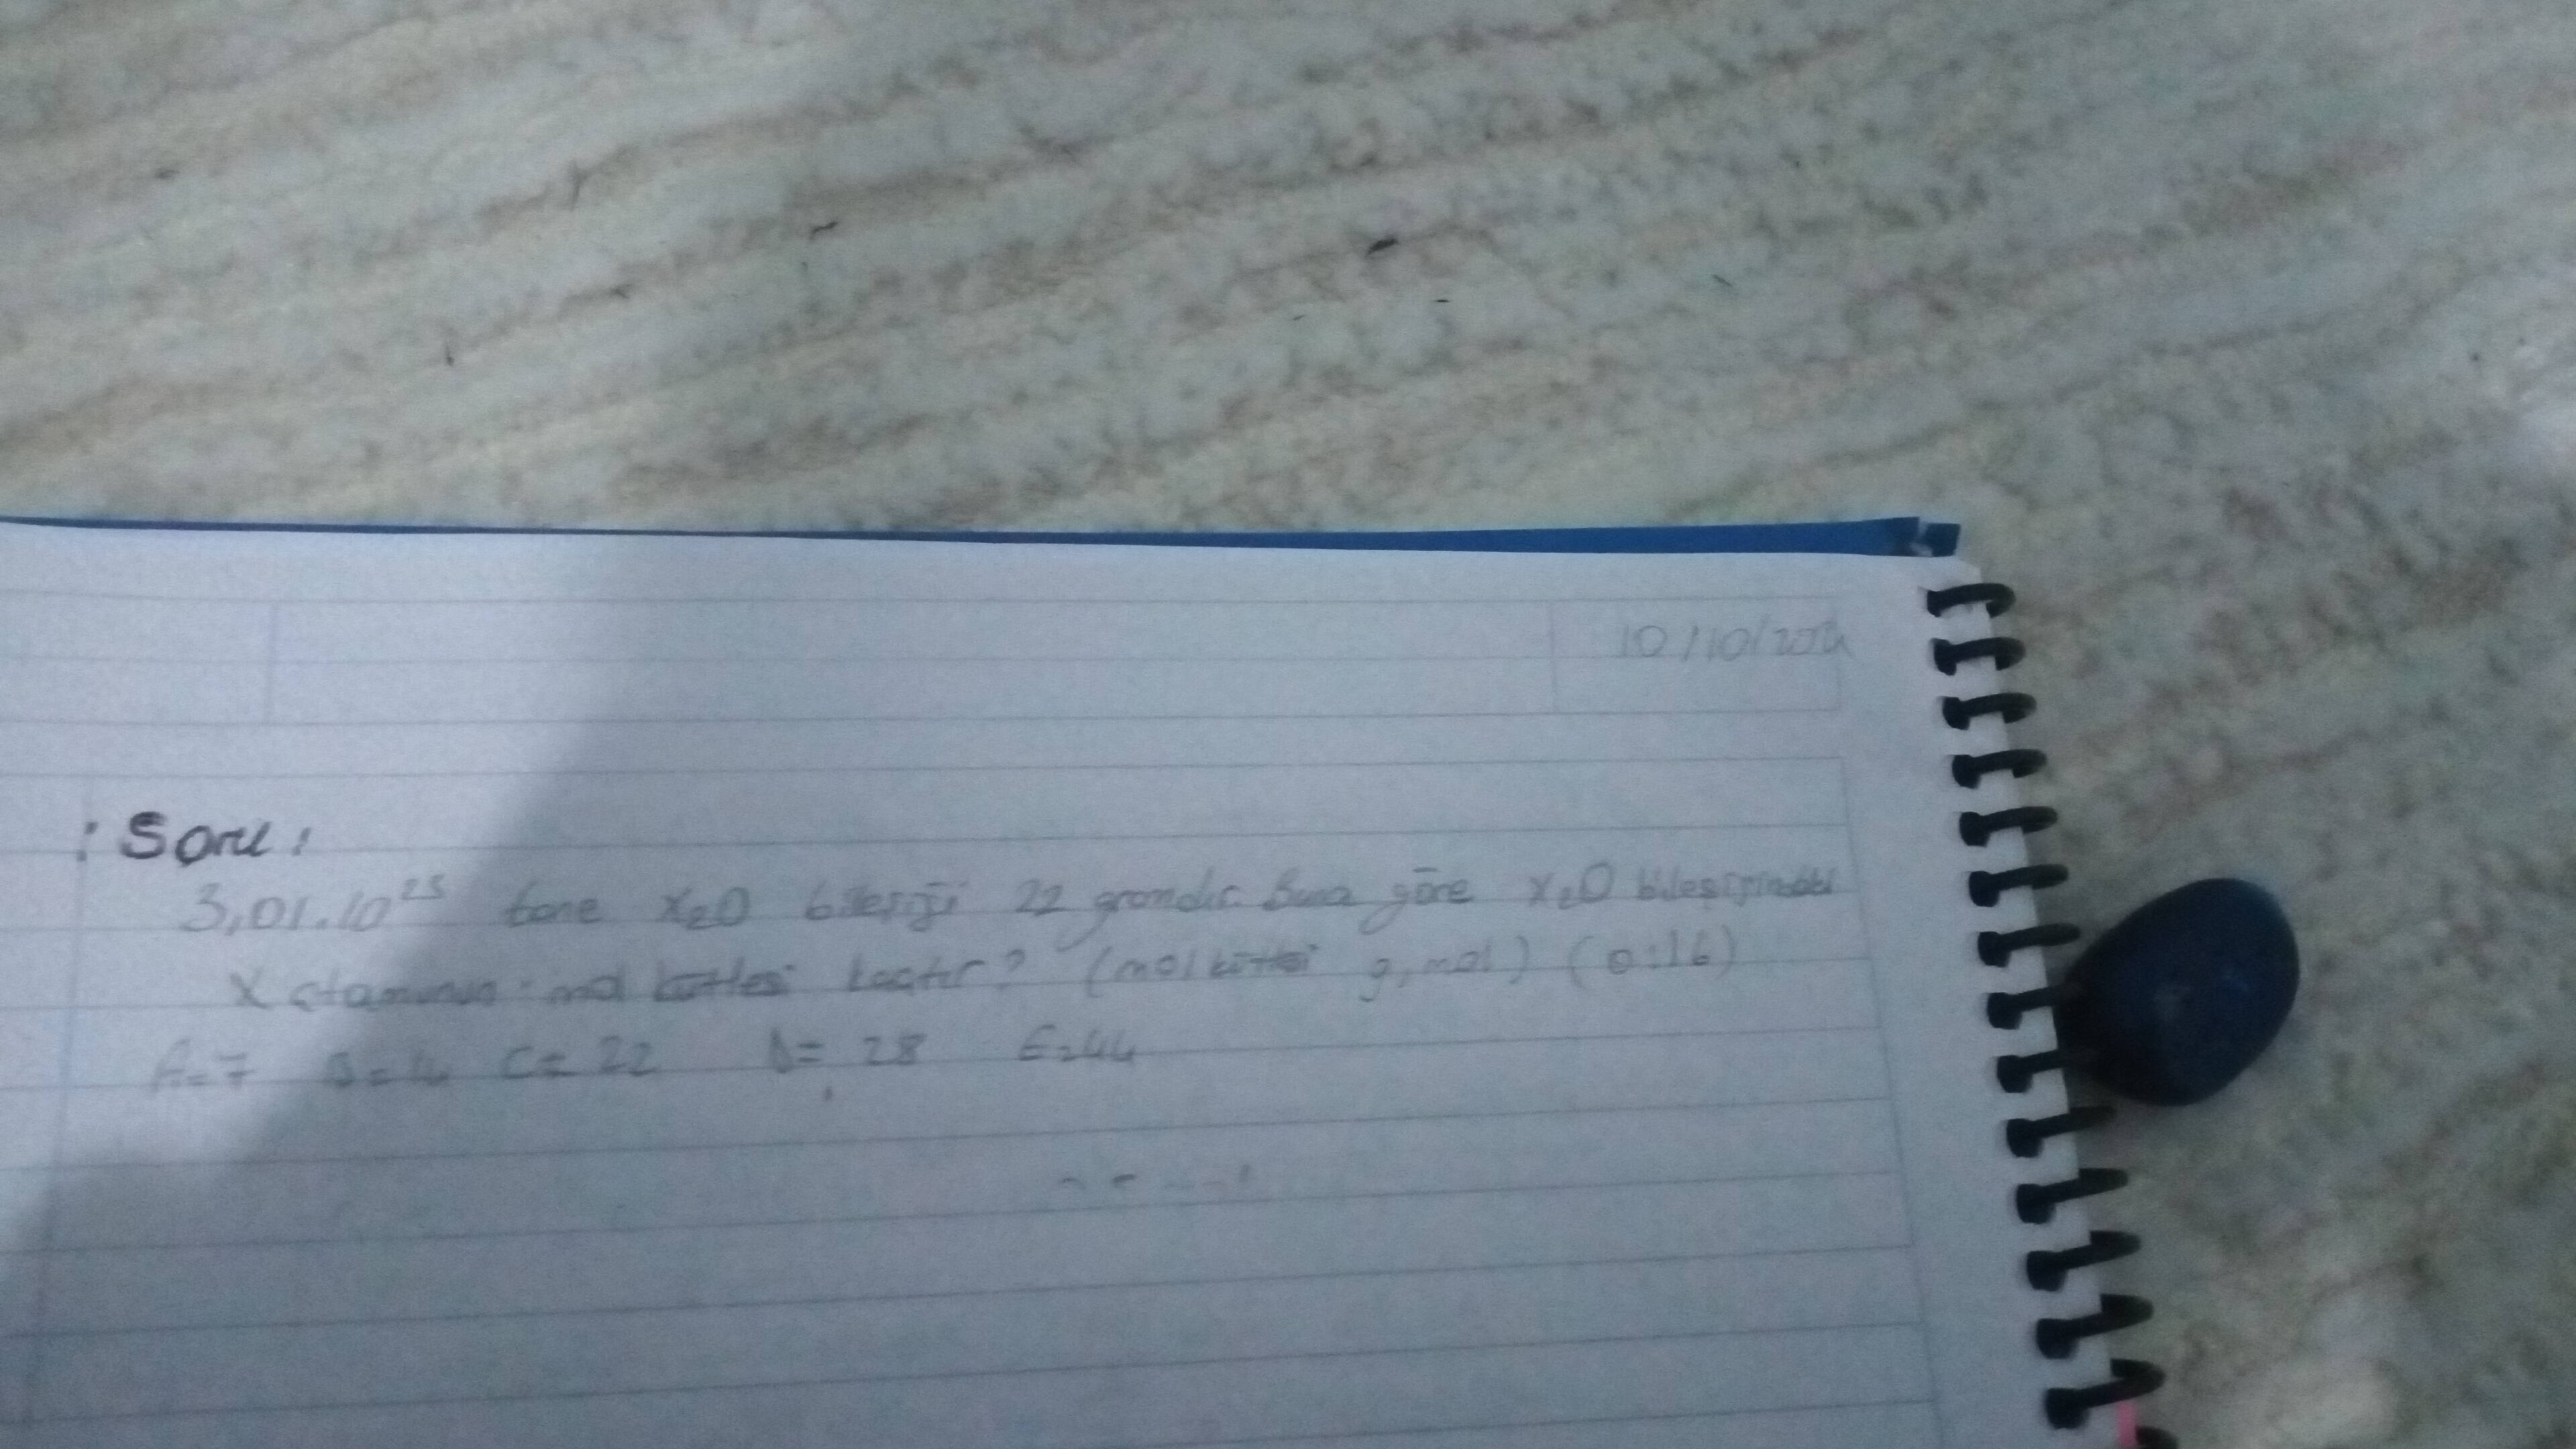 10/10/202
: Soru :
3,01.10²³ tane X₂O bileşiği 22 gramdır. Buna göre X₂O bileşiğindeki
X atomunun mol kütlesi kaçtır? (mol kütlesi g, mol) (O:16)
A=7 B=14 C=22 D= 28 E=44